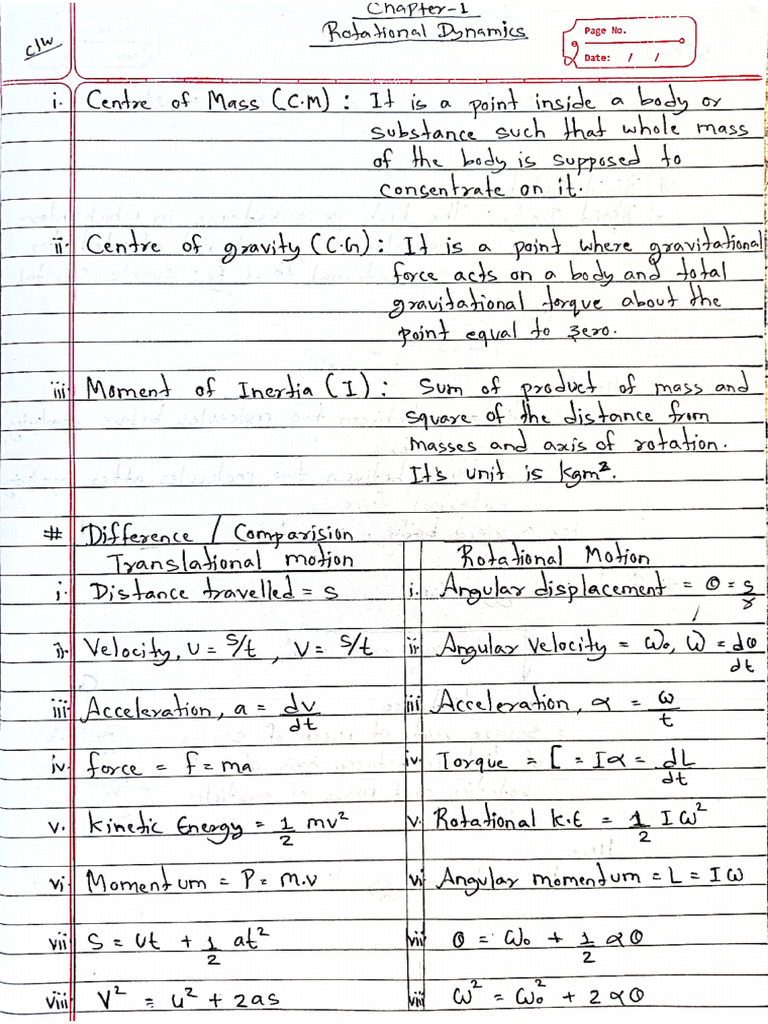 Chapter-1
Rotational Dynamics
c/w
Page No.
Date: / /
i. Centre of Mass (C.M) : It is a point inside a body or
substance such that whole mass
of the body is supposed to
consentrate on it.
ii. Centre of gravity (C.G) : It is a point where gravitational
force acts on a body and total
gravitational torque about the
point equal to zero.
iii. Moment of Inertia (I) : Sum of product of mass and
square of the distance from
masses and axis of rotation.
It's unit is kgm².
# Difference / Comparision
Translational motion | Rotational Motion
i. Distance travelled = s | i. Angular displacement = θ = s/r
ii. Velocity, u = s/t , v = s/t | ii Angular Velocity = ω₀, ω = dθ/dt
iii. Acceleration, a = dv/dt | iii Acceleration, α = ω/t
iv. force = f = ma | iv. Torque = [ = Iα = dL/dt
v. kinetic Energy = 1/2 mv² | v. Rotational k.E = 1/2 I ω²
vi. Momentum = P = m.v | vi Angular momentum = L = I ω
vii S = ut + 1/2 at² | vii θ = ω₀ + 1/2 αθ
viii V² = u² + 2as | viii ω² = ω₀² + 2αθ